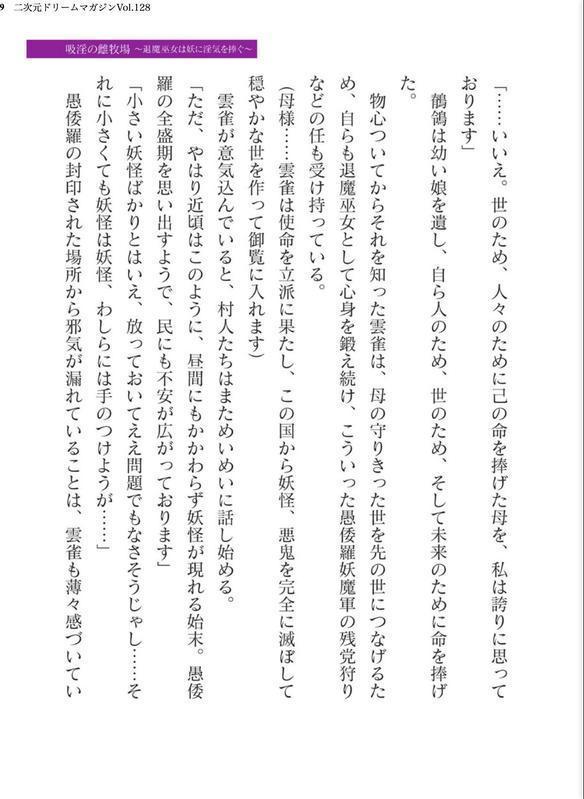 9 二次元ドリームマガジンVol.128
吸淫の雌牧場 ～退魔巫女は妖に淫気を捧ぐ～
「……いいえ。世のため、人々のために己の命を捧げた母を、私は誇りに思って
おります」
鶺鴒は幼い娘を遺し、自ら人のため、世のため、そして未来のために命を捧げ
た。
物心ついてからそれを知った雲雀は、母の守りきった世を先の世につなげるた
め、自らも退魔巫女として心身を鍛え続け、こういった愚倭羅妖魔軍の残党狩り
などの任も受け持っている。
（母様……雲雀は使命を立派に果たし、この国から妖怪、悪鬼を完全に滅ぼして
穏やかな世を作って御覧に入れます）
雲雀が意気込んでいると、村人たちはまためいめいに話し始める。
「ただ、やはり近頃はこのように、昼間にもかかわらず妖怪が現れる始末。愚倭
羅の全盛期を思い出すようで、民にも不安が広がっております」
「小さい妖怪ばかりとはいえ、放っておいてええ問題でもなさそうじゃし……そ
れに小さくても妖怪は妖怪、わしらには手のつけようが……」
愚倭羅の封印された場所から邪気が漏れていることは、雲雀も薄々感づいてい